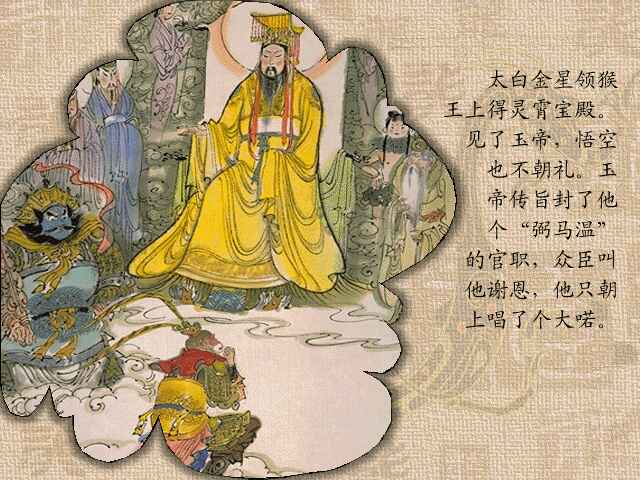 太白金星领猴
王上得灵霄宝殿。
见了玉帝，悟空
也不朝礼。玉
帝传旨封了他
个“弼马温”
的官职，众臣叫
他谢恩，他只朝
上唱了个大喏。